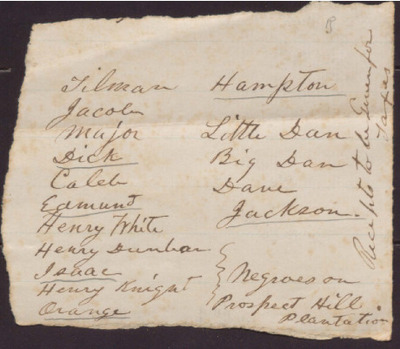 Tilman
Jacob
Major
Dick
Caleb
Edmund
Henry White
Henry Dunbar
Isaac
Henry Knight
Orange
Hampton
Little Dan
Big Dan
Dave
Jackson.
Negroes on
Prospect Hill
Plantation
Receipts to be Given for